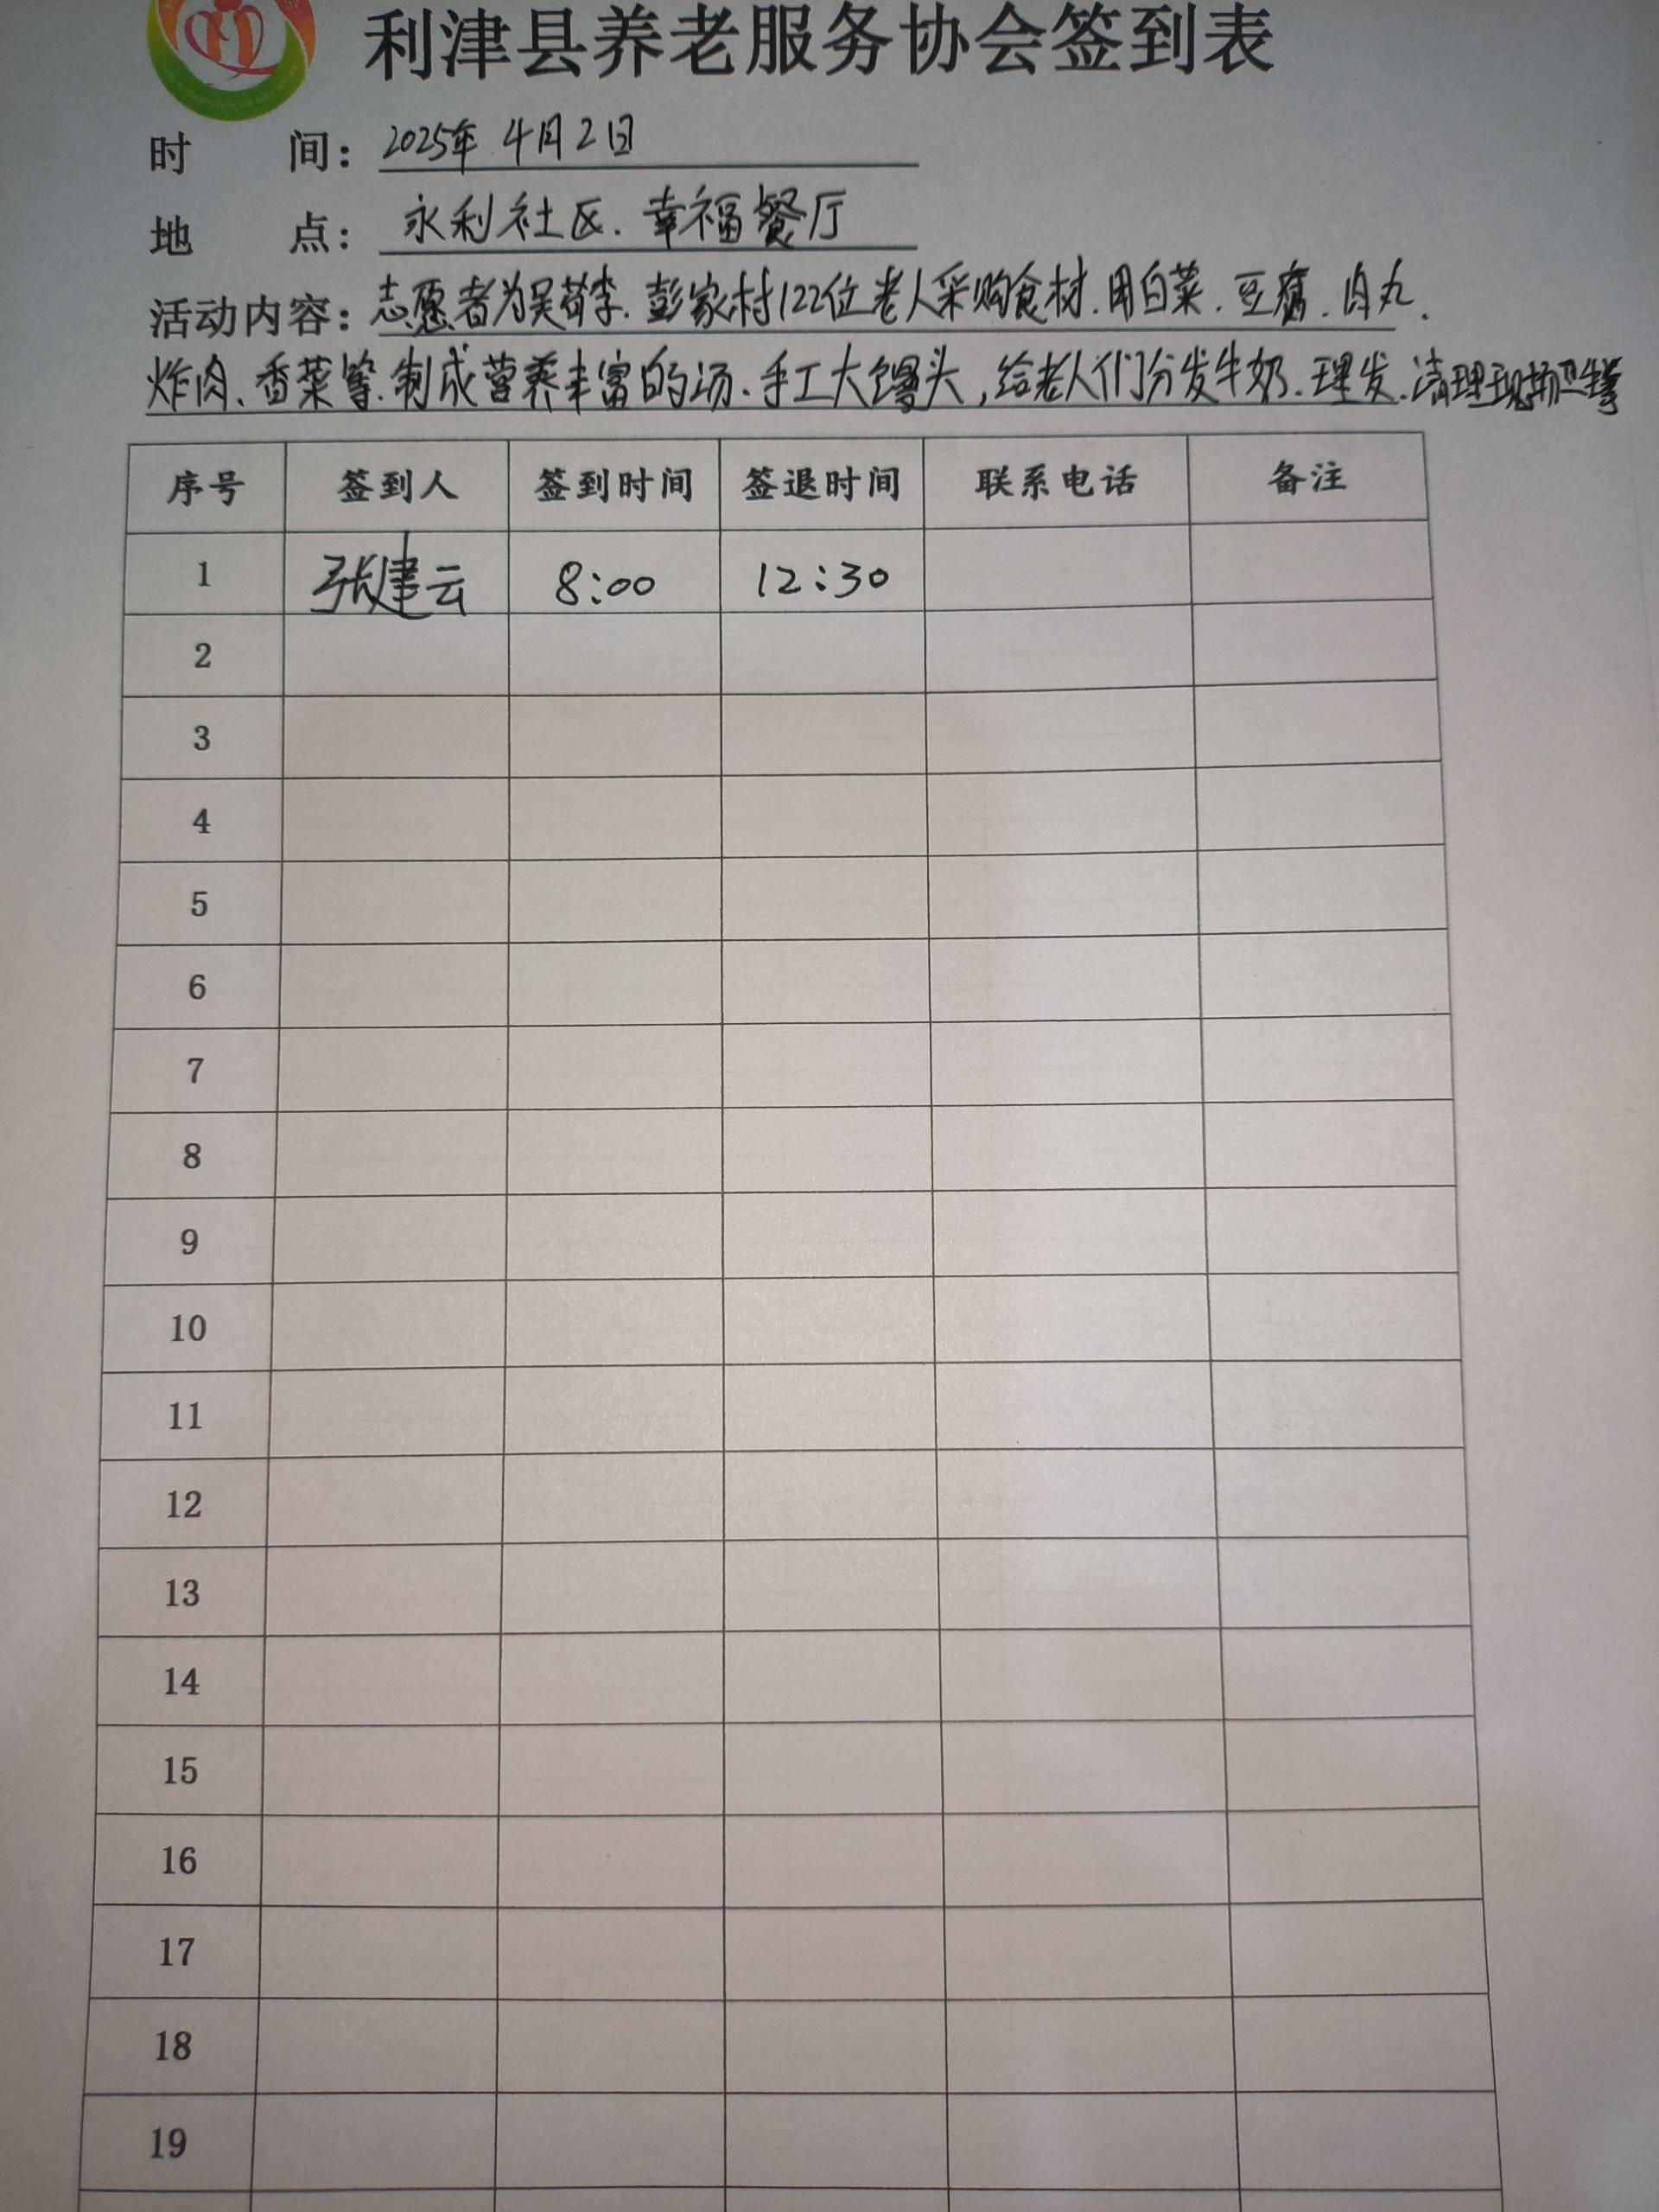 利津县养老服务协会签到表
时 间：2025年4月2日
地 点：永利社区.幸福餐厅
活动内容：志愿者为吴苟李.彭家村122位老人采购食材.用白菜.豆腐.肉丸.
炸肉、香菜等.制成营养丰富的汤.手工大馒头,给老人们分发牛奶.理发.清理现场卫生等
序号 签到人 签到时间 签退时间 联系电话 备注
1 张建云 8:00 12:30
2
3
4
5
6
7
8
9
10
11
12
13
14
15
16
17
18
19